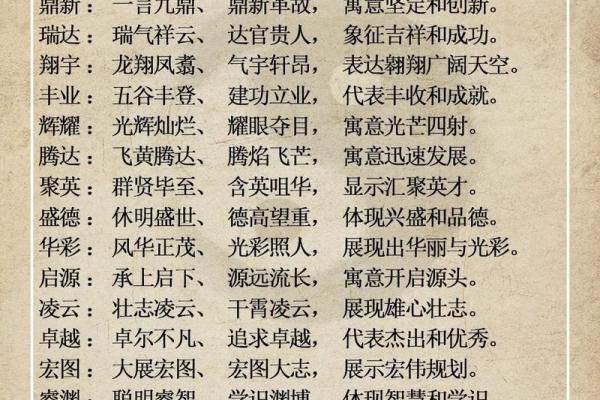 鼎新：一言九鼎、鼎新革故，寓意坚定和创新。
瑞达：瑞气祥云、达官贵人，象征吉祥和成功。
翔宇：龙翔凤翥、气宇轩昂，表达翱翔广阔天空。
丰业：五谷丰登、建功立业，代表丰收和成就。
辉耀：光辉灿烂、耀眼夺目，寓意光芒四射。
腾达：飞黄腾达、腾焰飞芒，寓意迅速发展。
聚英：群贤毕至、含英咀华，显示汇聚英才。
盛德：休明盛世、德高望重，体现兴盛和品德。
华彩：风华正茂、光彩照人，展现出华丽与光彩。
启源：承上启下、源远流长，寓意开启源头。
凌云：壮志凌云、干霄凌云，展现雄心壮志。
卓越：卓尔不凡、追求卓越，代表杰出和优秀。
宏图：大展宏图、宏图大志，展示宏伟规划。
睿渊：聪明睿智、学识渊博，体现智慧和学识。